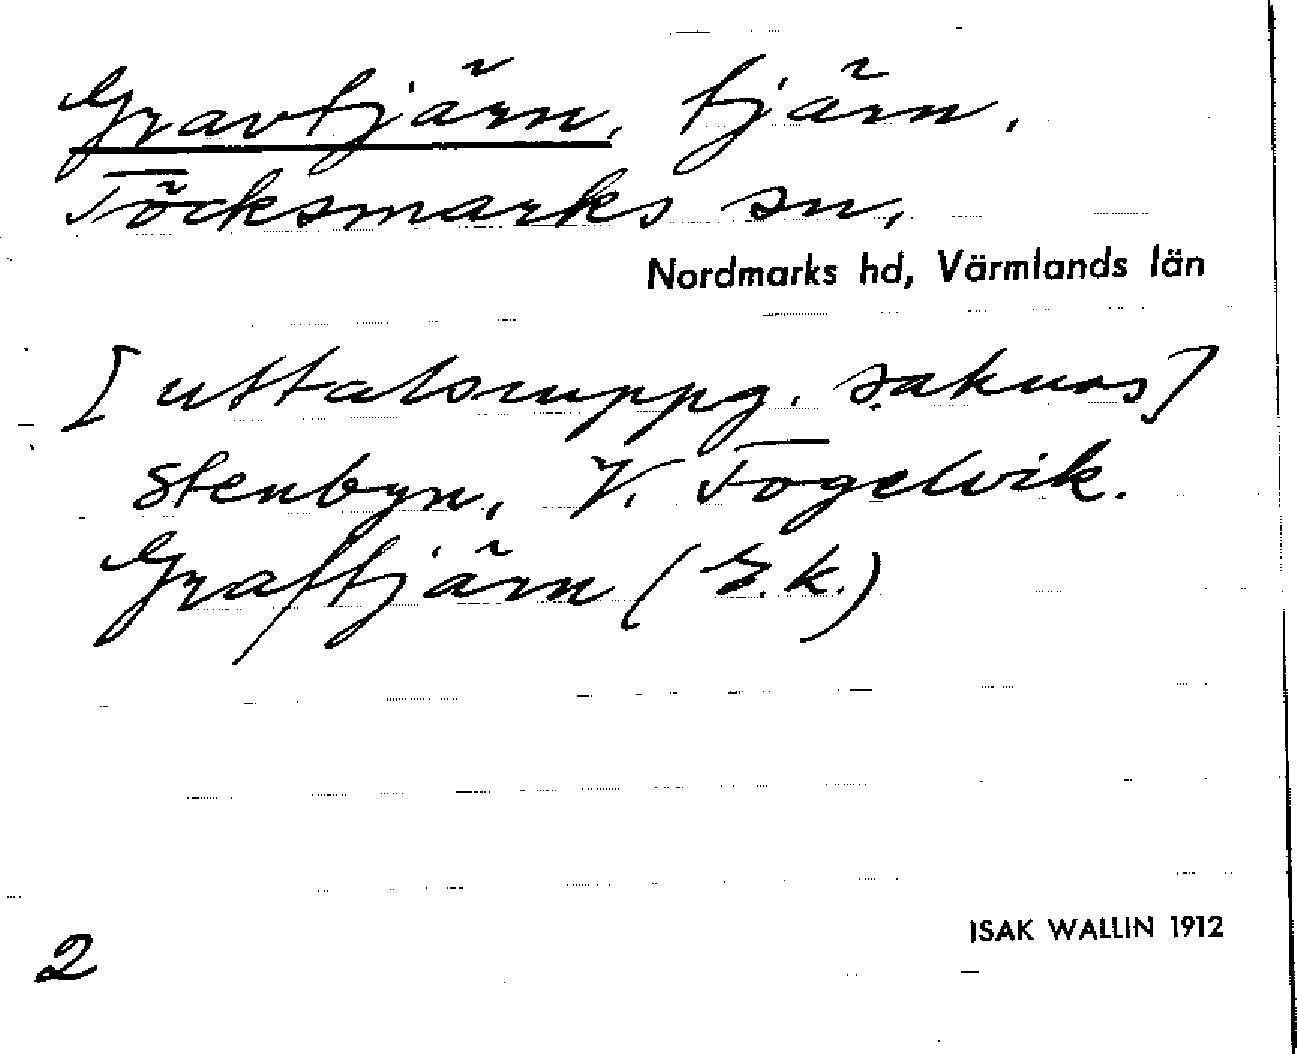 Gravtjärn, tjärn.
Töcksmarks sn,
Nordmarks hd, Värmlands län
[uttalsuppg. saknas]
Stenbyn, V. Fogelvik.
Graftjärn (G.k.)
2
ISAK WALLIN 1912